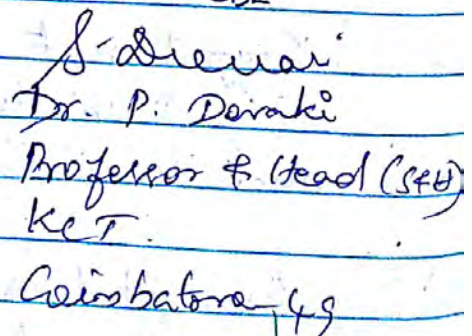 Dr. P. Devaki
Professor & Head (S&H)
KCT.
Coimbatore - 49